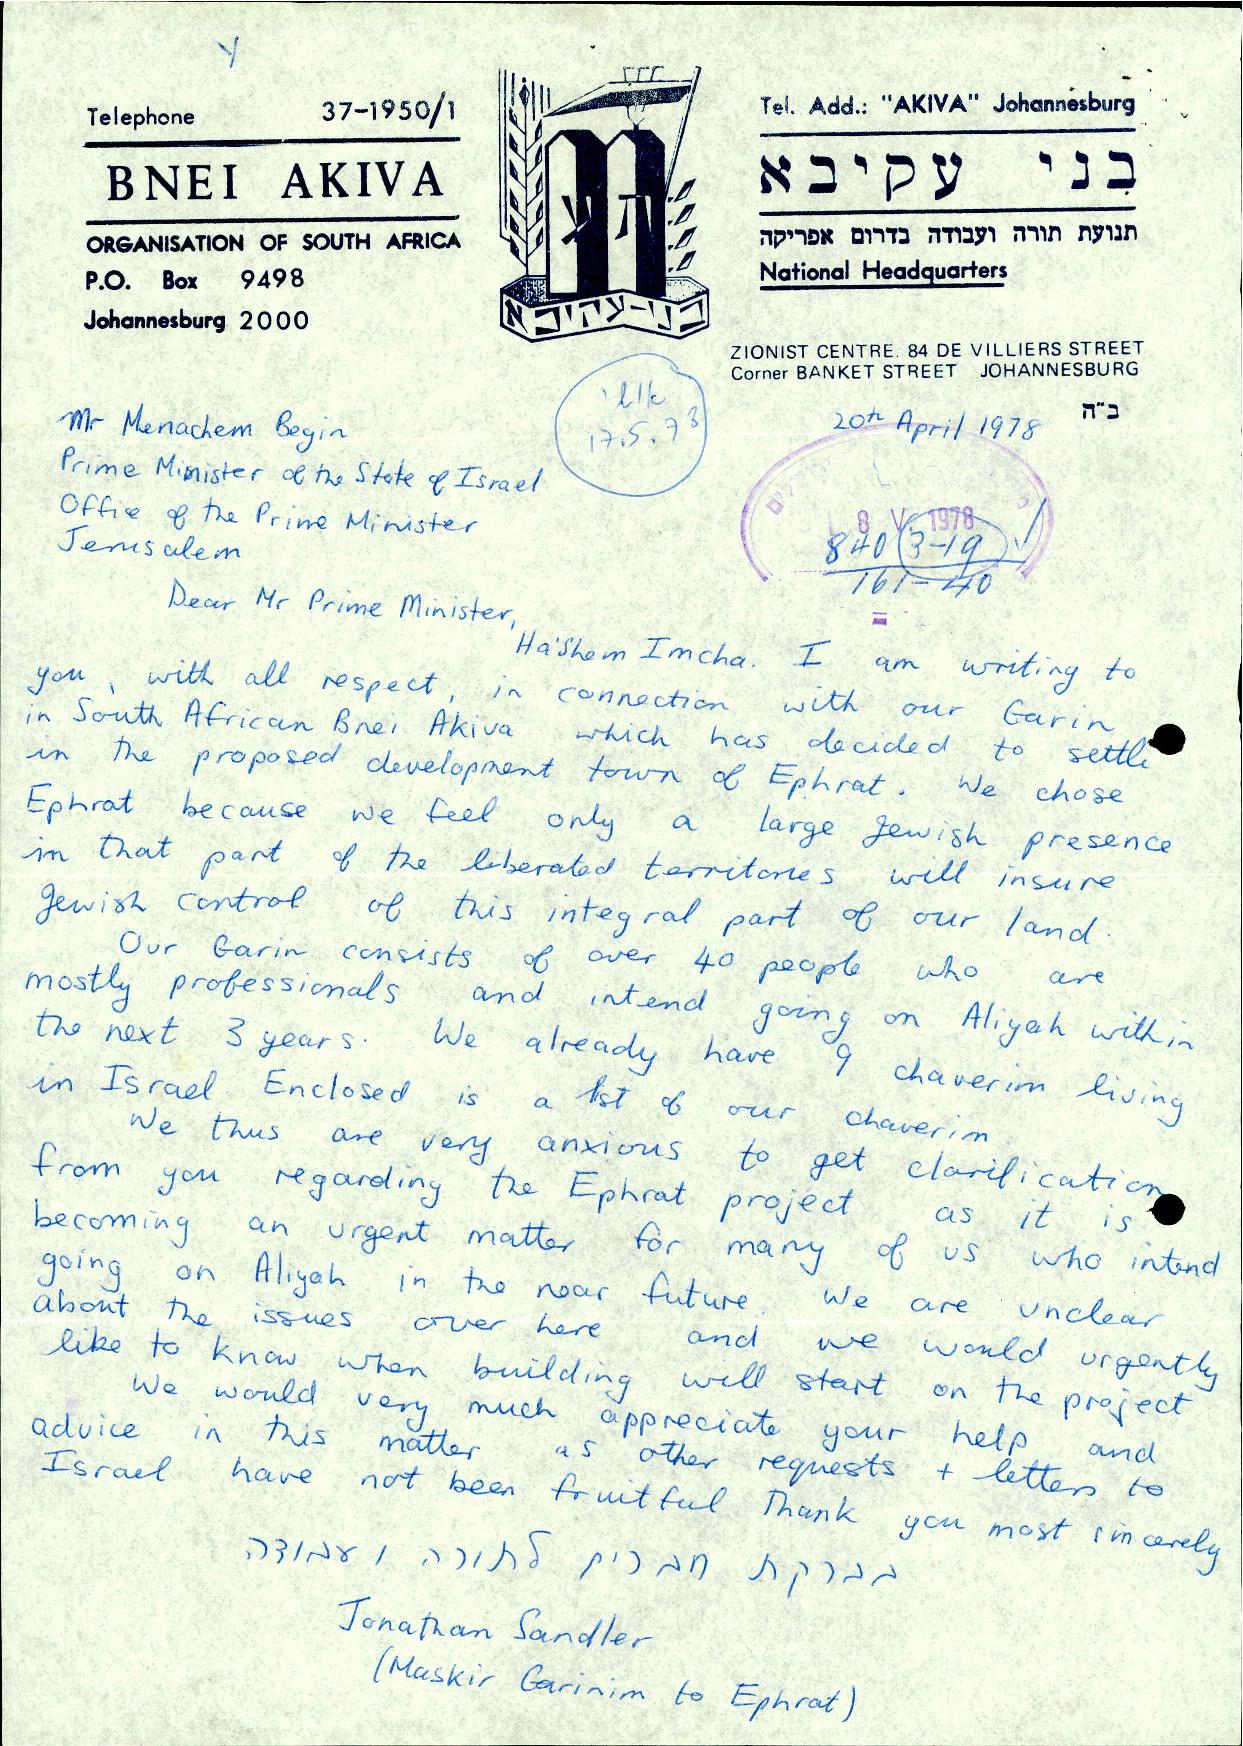 Telephone 37-1950/1
BNEI AKIVA
ORGANISATION OF SOUTH AFRICA
P.O. Box 9498
Johannesburg 2000
ת ע
בני-עקיבא
Tel. Add.: "AKIVA" Johannesburg
בני עקיבא
תנועת תורה ועבודה בדרום אפריקה
National Headquarters
ZIONIST CENTRE. 84 DE VILLIERS STREET
Corner BANKET STREET JOHANNESBURG
ב"ה
20th April 1978
17.5.78
8 V. 1978
840 3-19
161-40
Mr Menachem Begin
Prime Minister of the State of Israel
Office of the Prime Minister
Jerusalem
Dear Mr Prime Minister,
Ha'Shem Imcha. I am writing to
you, with all respect, in connection with our Garin
in South African Bnei Akiva which has decided to settle
in the proposed development town of Ephrat. We chose
Ephrat because we feel only a large Jewish presence
in that part of the liberated territories will insure
Jewish control of this integral part of our land.
Our Garin consists of over 40 people who are
mostly professionals and intend going on Aliyah within
the next 3 years. We already have 9 chaverim living
in Israel Enclosed is a list of our chaverim.
We thus are very anxious to get clarification
from you regarding the Ephrat project as it is
becoming an urgent matter for many of us who intend
going on Aliyah in the near future. We are unclear
about the issues over here and we would urgently
like to know when building will start on the project
We would very much appreciate your help and
advice in this matter as other requests + letters to
Israel have not been fruitful Thank you most sincerely
בברקת חברים לתורה ועבודה
Jonathan Sandler
(Maskir Garinim to Ephrat)